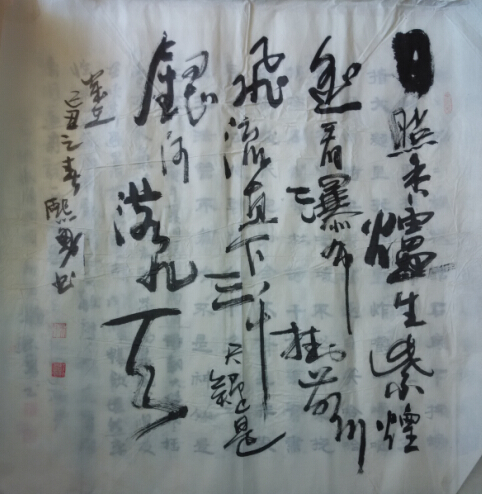 日照香爐生紫煙
遥看瀑布挂前川
飛流直下三千尺疑是
銀河落九天
己丑之春熙书